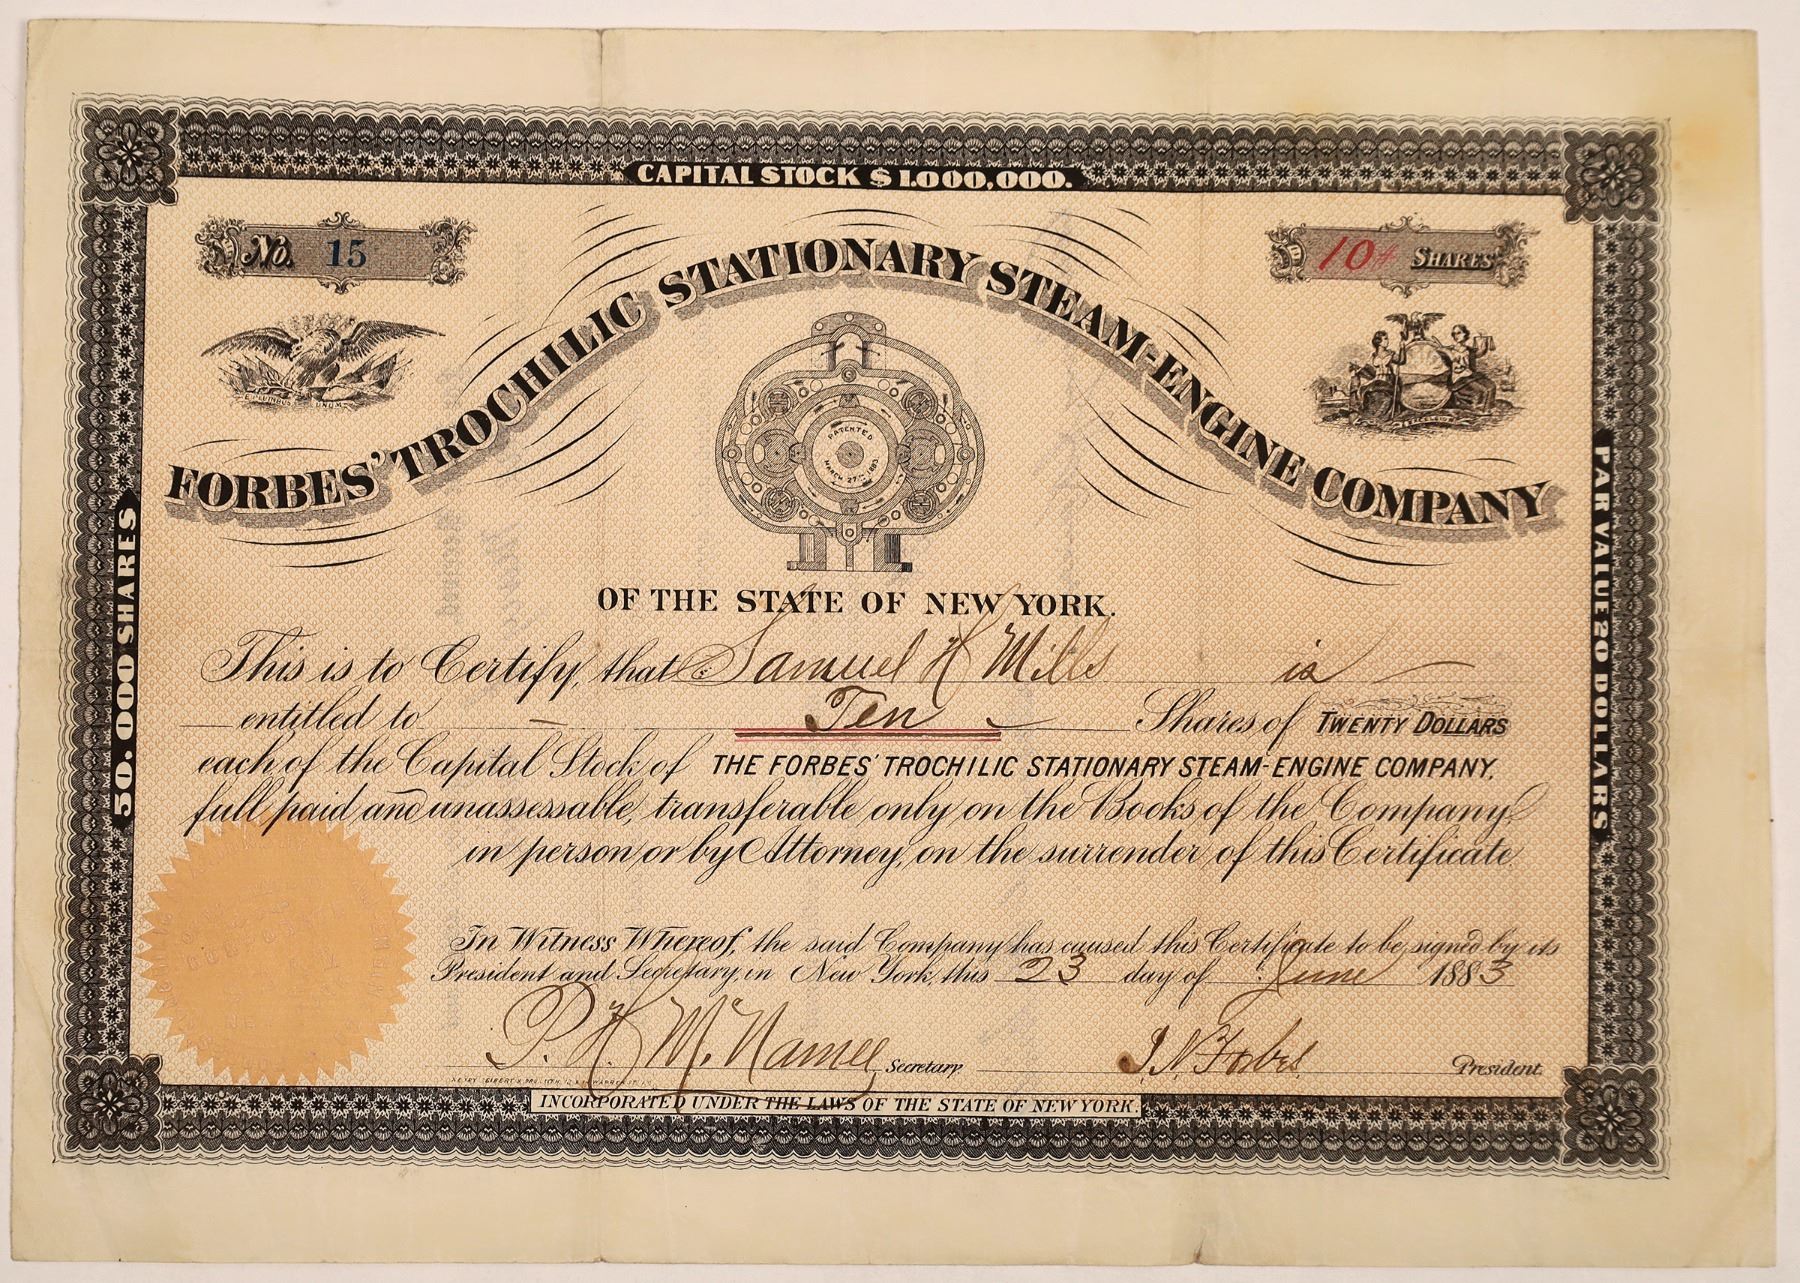 CAPITAL STOCK $1.000,000.
No. 15
10 SHARES
E PLURIBUS UNUM
EXCELSIOR
FORBES' TROCHILIC STATIONARY STEAM-ENGINE COMPANY
PATENTED
MARCH 27TH, 1883
OF THE STATE OF NEW YORK.
50.000 SHARES
PAR VALUE 20 DOLLARS
This is to Certify, that Samuel H Mills is
entitled to Ten Shares of TWENTY DOLLARS
each of the Capital Stock of THE FORBES' TROCHILIC STATIONARY STEAM-ENGINE COMPANY.
full paid and unassessable, transferable only on the Books of the Company,
in person or by Attorney, on the surrender of this Certificate.
In Witness Whereof, the said Company has caused this Certificate to be signed by its
President and Secretary, in New York, this 23 day of June 1883
P. H. McNamee Secretary
J N Forbes President.
INCORPORATED UNDER THE LAWS OF THE STATE OF NEW YORK.